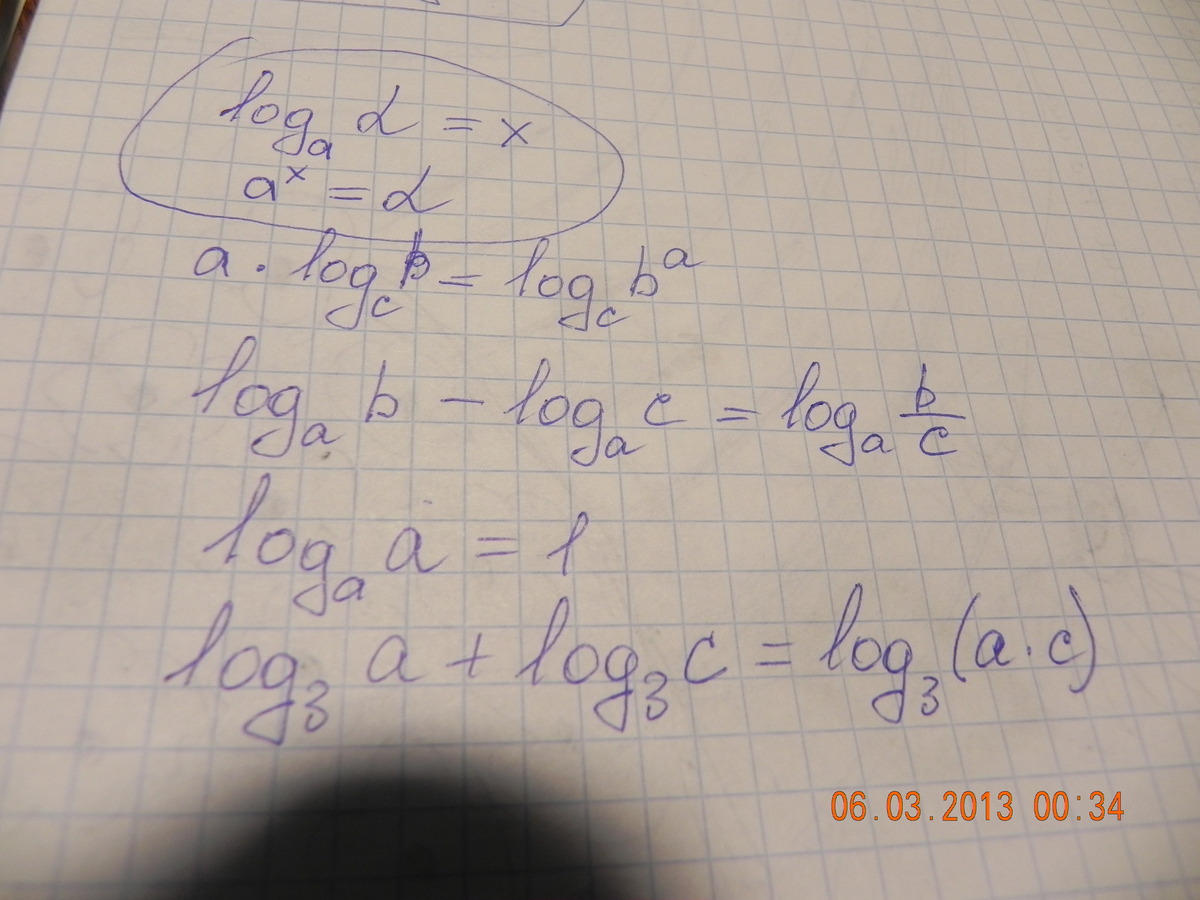 logₐ α = x
aˣ = α
a · log_c b = log_c bᵃ
logₐ b − logₐ c = logₐ b/c
logₐ a = 1
log₃ a + log₃ c = log₃ (a · c)
06.03.2013 00:34